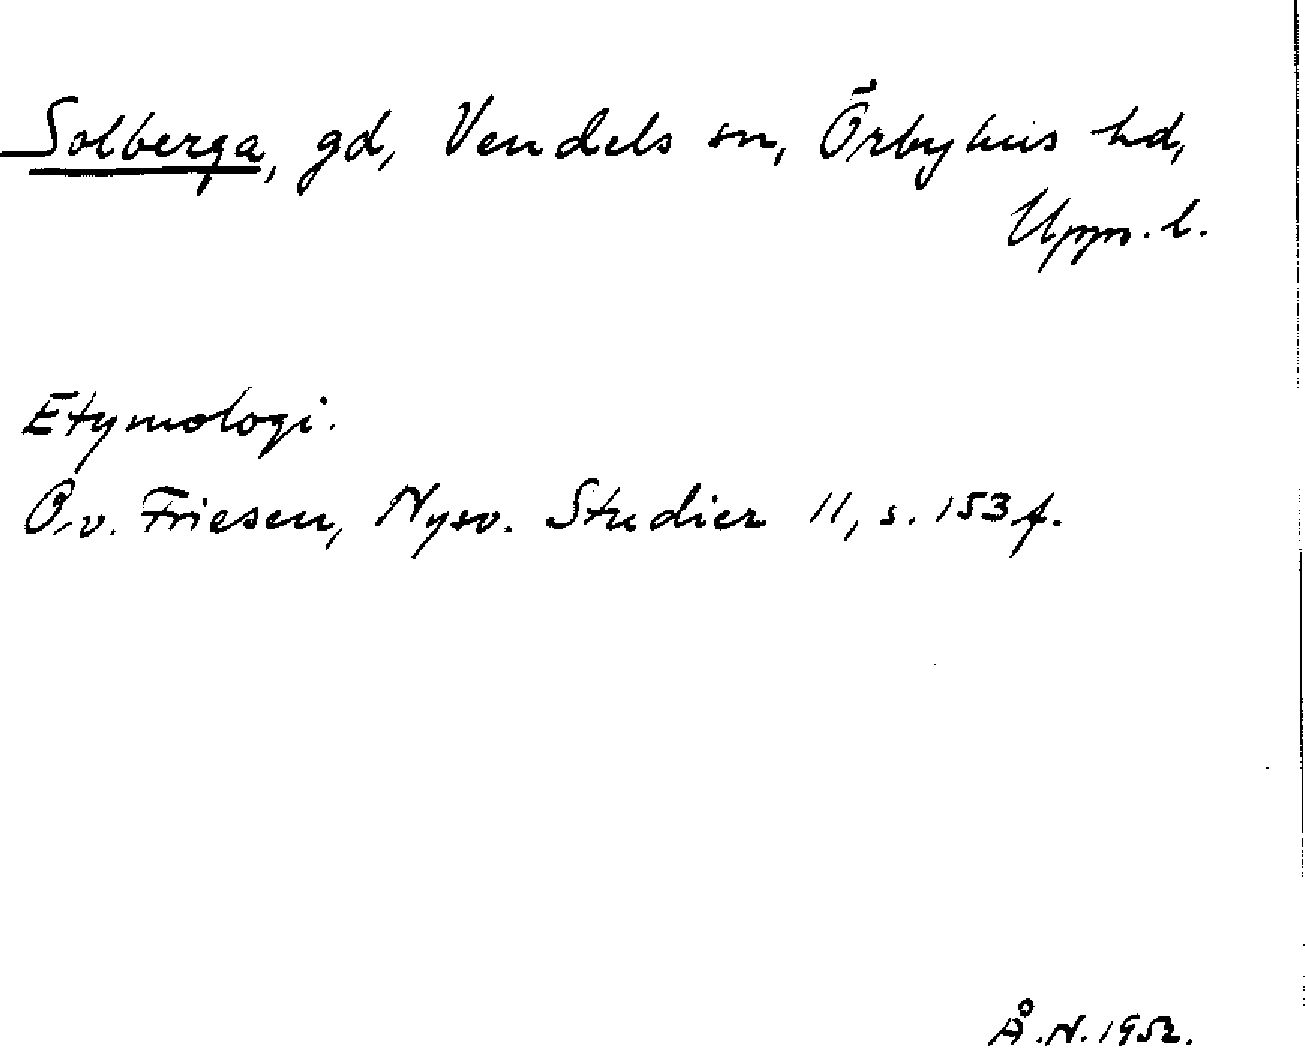 Solberga, gd, Vendels sn, Örbyhus hd,
Upps. l.
Etymologi.
O. v. Friesen, Nysv. Studier 11, s. 153 f.
Å. N. 1952.